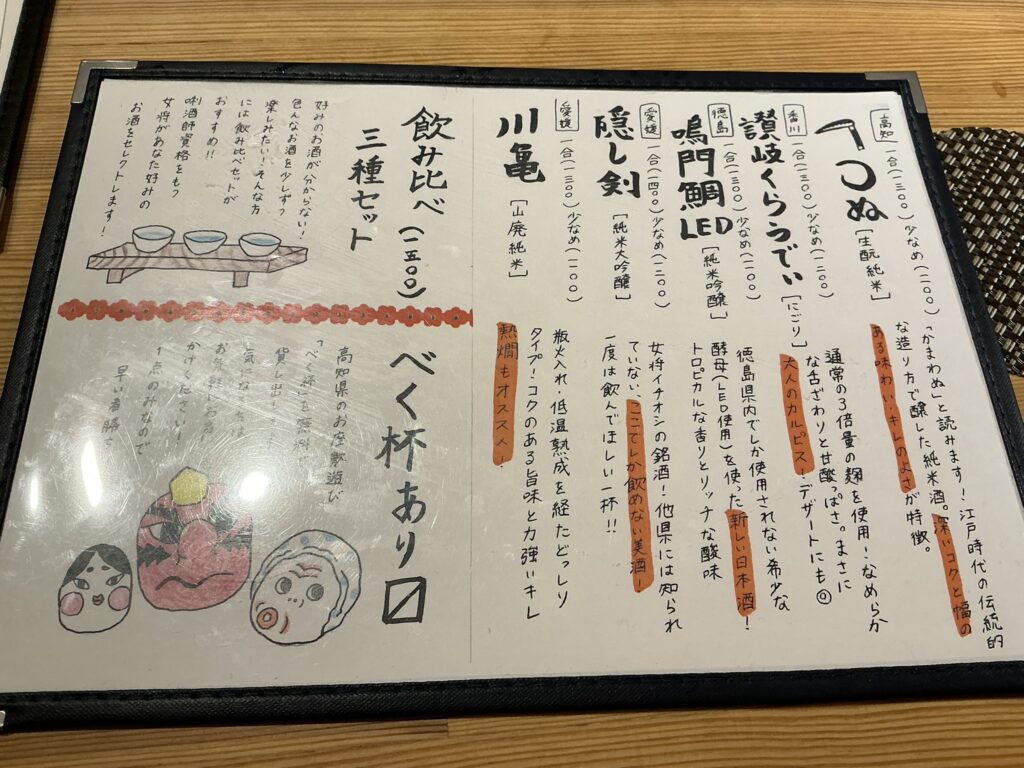 高知
一合(一三〇〇)少なめ(一一〇〇)
つぬ
[生酛純米]
「かまわぬ」と読みます!江戸時代の伝統的
な造り方で醸した純米酒。深いコクと幅の
ある味わい・キレのよさが特徴。
香川
一合(一三〇〇)少なめ(一一〇〇)
讃岐くらうでぃ
[にごり]
通常の3倍量の麹を使用!なめらか
な舌ざわりと甘酸っぱさ。まさに
大人のカルピス!デザートにも◎
徳島
一合(一三〇〇)少なめ(一一〇〇)
鳴門鯛LED
[純米吟醸]
徳島県内でしか使用されない希少な
酵母(LED使用)を使った新しい日本酒!
トロピカルな香りとリッチな酸味
愛媛
一合(一四〇〇)少なめ(一二〇〇)
隠し剣
[純米大吟醸]
女将イチオシの銘酒!他県には知られ
ていない、ここでしか飲めない美酒!
一度は飲んでほしい一杯!!
愛媛
一合(一三〇〇)少なめ(一一〇〇)
川亀
[山廃純米]
瓶火入れ・低温熟成を経たどっしり
タイプ!コクのある旨味と力強いキレ
熱燗もオススメ!
飲み比べ(一五〇〇)
三種セット
好みのお酒が分からない!
色んなお酒を少しずつ
楽しみたい!そんな方
には飲み比べセットが
おすすめ!!
唎酒師資格をもつ
女将があなた好みの
お酒をセレクトします!
べく杯あり〼
高知県のお座敷遊び
「べく杯」を無料
貸し出し
気になる
お気軽にお声
かけください!
1点のみなので
早い者勝ち